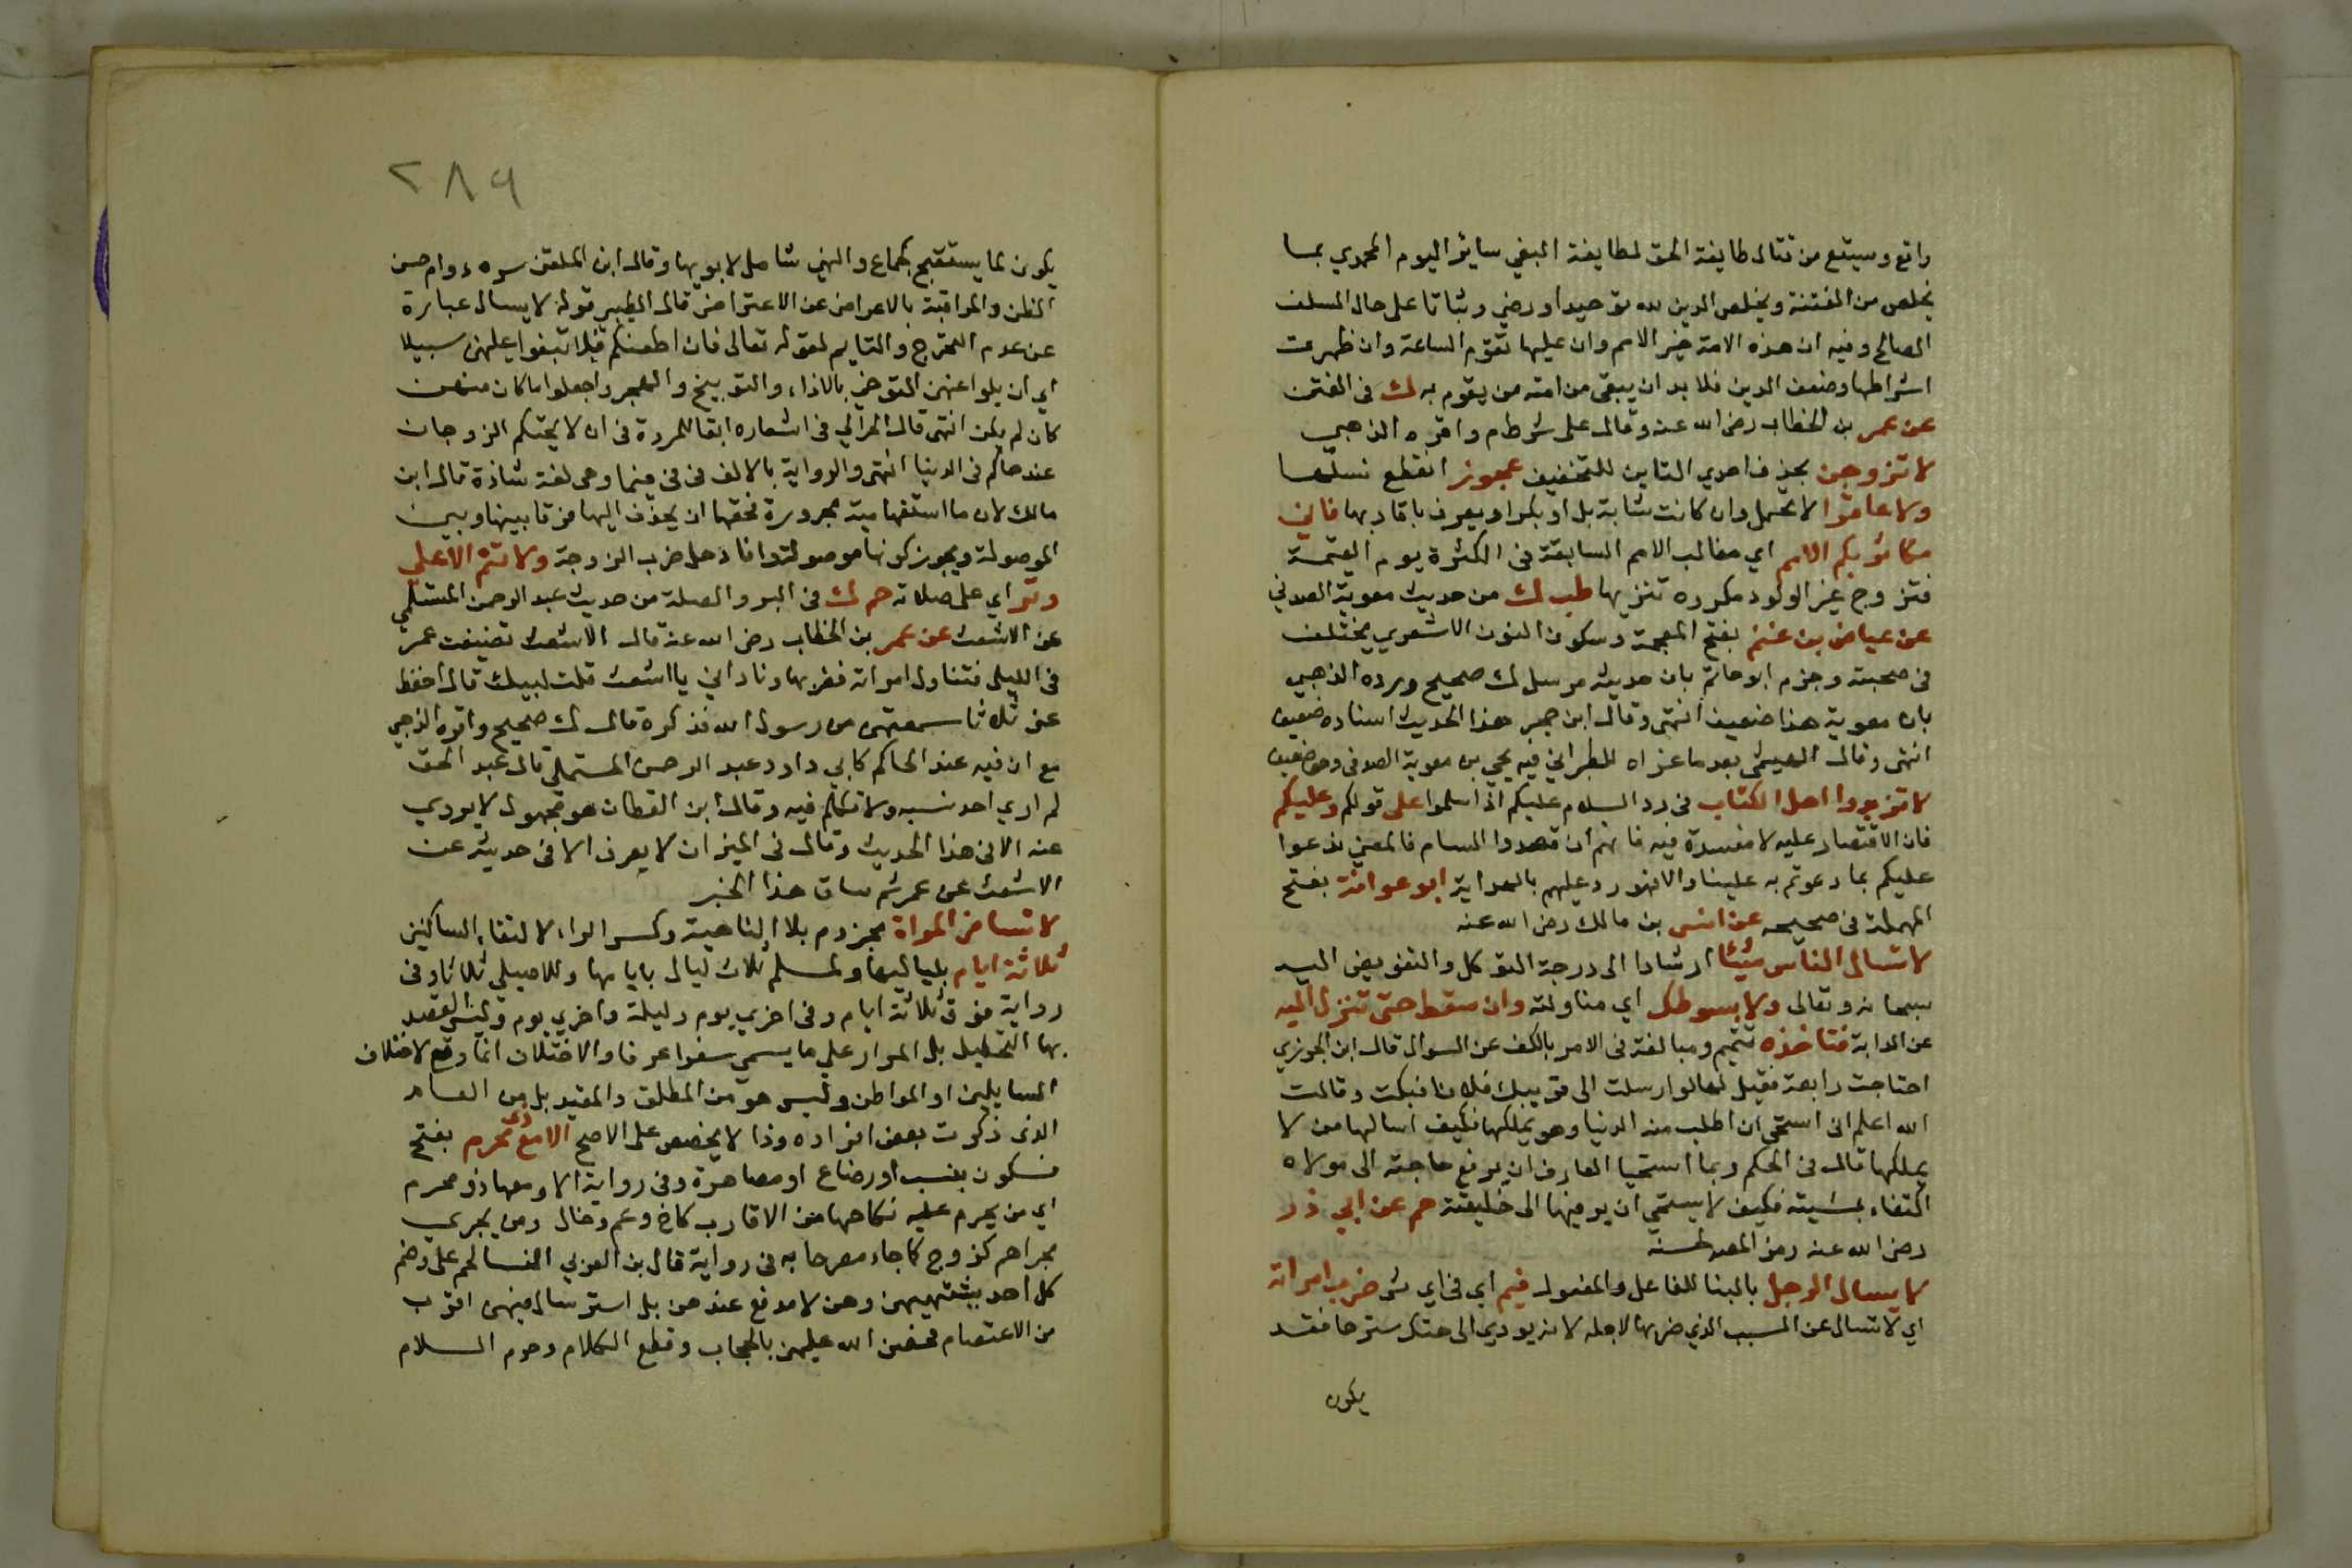 واقع وسيتع من قتال طايفة الحق لطايفة البغي سايز اليوم المحمدي بما
يخلص من الفتنة ويخلص الدين لله توحيدا ورضي وثباتا على حال السلف
الصالح وفيه ان هذه الامة خير الامم وان عليها تقوم الساعة وان ظهرت
اشراطها وضعف الدين فلا بد ان يبقى من امته من يقوم به ك في الفتن
عن عمر بن الخطاب رضي الله عنه وقال على شرط م واقره الذهبي
لا تزوجن بحذف احدي التاين للتخفيف عجوز انقطع نسلها
ولا عاقرا لا تحمل وان كانت شابة بل او بكرا ويعرف باقاربها فاني
مكاثر بكم الامم اي مغالب الامم السابقة في الكثرة يوم القيمة
فتزوج غير الولود مكروه تنزيها طب ك من حديث معوية الصدفي
عن عياض بن غنم بفتح المعجمة وسكون النون الاشعري يختلف
في صحبته وجزم ابو حاتم بان حديثه مرسل ك صحيح ورده الذهبي
بان معوية هذا ضعيف انتهى وقال ابن حجر هذا الحديث اسناده ضعيف
انتهى وقال الهيثمي بعد ما عزاه للطبراني فيه يحي بن معوية الصدفى وهو ضعيف
لا تزيدوا اهل الكتاب في رد السلام عليكم اذا سلموا على قولكم وعليكم
فان الاقتصار عليه لا مفسدة فيه فانهم ان قصدوا السام فالمعني ندعوا
عليكم بما دعوتم به علينا والا فهو رد عليهم بالهداية ابو عوانة بفتح
المهملة في صحيحه عن انس بن مالك رضي الله عنه
لا تسال الناس شيئا ارشادا الى درجة التوكل والتفويض اليه
سبحانه وتعالى ولا بسوطك اي مناولته وان سقط حتى تنزل اليه
عن الدابة فتاخذه تتميم ومبالغة في الامر بالكف عن السوال قال ابن الجوزي
احتاجت رابعة فقيل لها لو ارسلت الى قريبك فلانا فبكت وقالت
الله اعلم اني استحي ان اطلب منه الدنيا وهو يملكها فكيف اسالها من لا
يملكها قال في الحكم ربما استحيا العارف ان يرفع حاجته الى مولاه
اكتفاء بمشيئته فكيف لا يستحي ان يرفعها الى خليقته حم عن ابي ذر
رضي الله عنه رمز المص لحسنه
لا يسال الرجل بالبنا للفاعل والمفعول فيم اي في اي شي ضرب امراته
اي لا تسال عن السبب الذي ضربها لاجله لانه يودي الى هتك سترها فقد
يكون
٢٨٩
يكون لما يستقبح كجماع والنهي شامل لابويها وقال ابن الملقن سره دوام حسن
الظن والمراقبة بالاعراض عن الاعتراض قال الطيبي قوله لا يسال عبارة
عن عدم التحرج والتايم لقوله تعالى فان اطعنكم فلا تبغوا عليهن سبيلا
اي ازيلوا عنهن التوخي بالاذاء والتوبيخ والهجر واجعلوا ما كان منهن
كان لم يكن انتهى قال الحرالي في اشعاره ابقا للمردة في ان لا يحتكم الزوجان
عند حاكم في الدنيا انتهى والرواية بالالف في فيما وهي لغة شاذة قال ابن
مالك لان ما استفهامية مجرورة فحقها ان يحذف اليها فرقا بينها وبين
الموصولة ويجوز كونها موصولة ضرب الزوجة ولا تنم الا على
وتر اي على صلاته حم ك في البر والصلة من حديث عبد الرحمن المستلمي
عن الاشعث عن عمر بن الخطاب رضي الله عنه قال الاشعث تضيفت عمر
في الليل فتناول امراته فضربها وناداني يا اشعث قلت لبيك قال احفظ
عني ثلاثا سمعتهن من رسول الله فذكره قال ك صحيح واقره الذهبي
مع ان فيه عند الحاكم كابي داود عبد الرحمن المستملي قال عبد الحق
لم اري احد نسبه ولا تكلم فيه وقال ابن القطان هو مجهول لا يروي
عنه الا في هذا الحديث وقال في الميزان لا يعرف الا في حديثه عن
الاشعث عن عمر ثم ساق هذا الخبر
لا تسافر المراة مجزوم بلا الناهية وكسر الراء لالتقاء الساكنين
ثلاثة ايام بلياليها ولمسلم ثلاث ليال بايامها وللاصيلي ثلاثا وفي
رواية فوق ثلاثة ايام وفي اخري يوم وليلة واخري يوم وليس القصد
بها التحليل بل المدار علي ما يسمي سفرا عرفا والاختلاف انما وقع لاختلاف
السايلين او المواطن وليس هو من المطلق والمقيد بل من العام
الذي ذكرت بعض افراده وذا لا يخصص على الاصح الا مع ذي محرم بفتح
فسكون بنسب او رضاع او مصاهرة وفي رواية الا ومعها ذو محرم
اي من يحرم عليه نكاحها من الاقارب كاخ وعم وخال ومن يجري
مجراهم كزوج كما جاء مصرحا به في رواية قال بن العربي النسا لحم على وضم
كل احد يشتهيهن وهن لا مدفع عندهن بل استرسال فيهن اقرب
من الاعتصام فحصن الله عليهن بالحجاب وقطع الكلام وحرم السلام